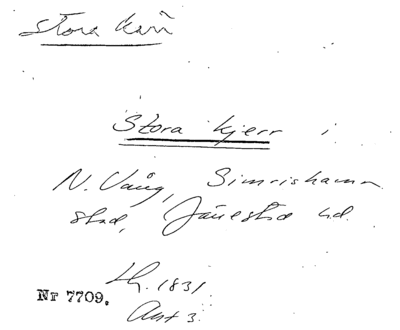 Stora kärr
Stora kjerr i
N. Vång, Simrishamn
stad, Järrestad hd.
Lh. 1831
Nr 7709.
Akt 3.